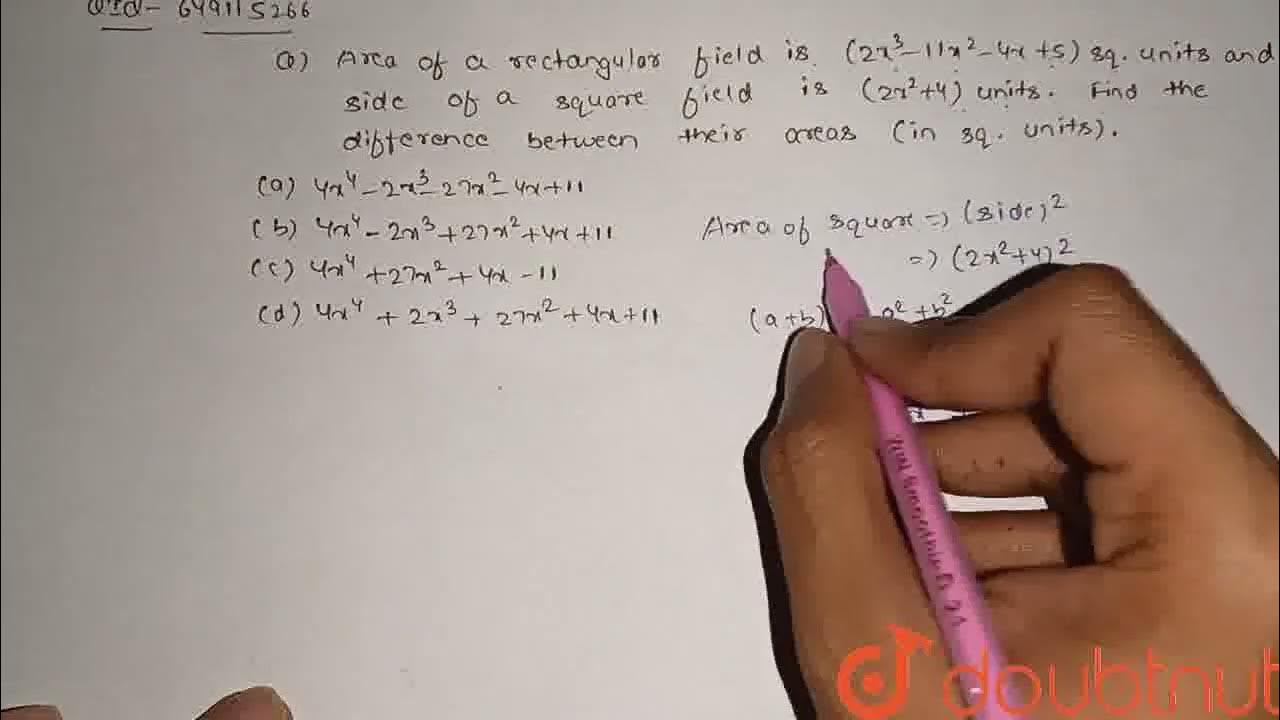 QID- 649115266
Q) Area of a rectangular field is (2x³-11x²-4x+5) sq. units and
side of a square field is (2x²+4) units. Find the
difference between their areas (in sq. units).
(a) 4x⁴-2x³-27x²-4x+11
(b) 4x⁴-2x³+27x²+4x+11
(c) 4x⁴+27x²+4x-11
(d) 4x⁴+2x³+27x²+4x+11
Area of square => (side)²
=> (2x²+4)²
(a+b) a²+b²
doubtnut